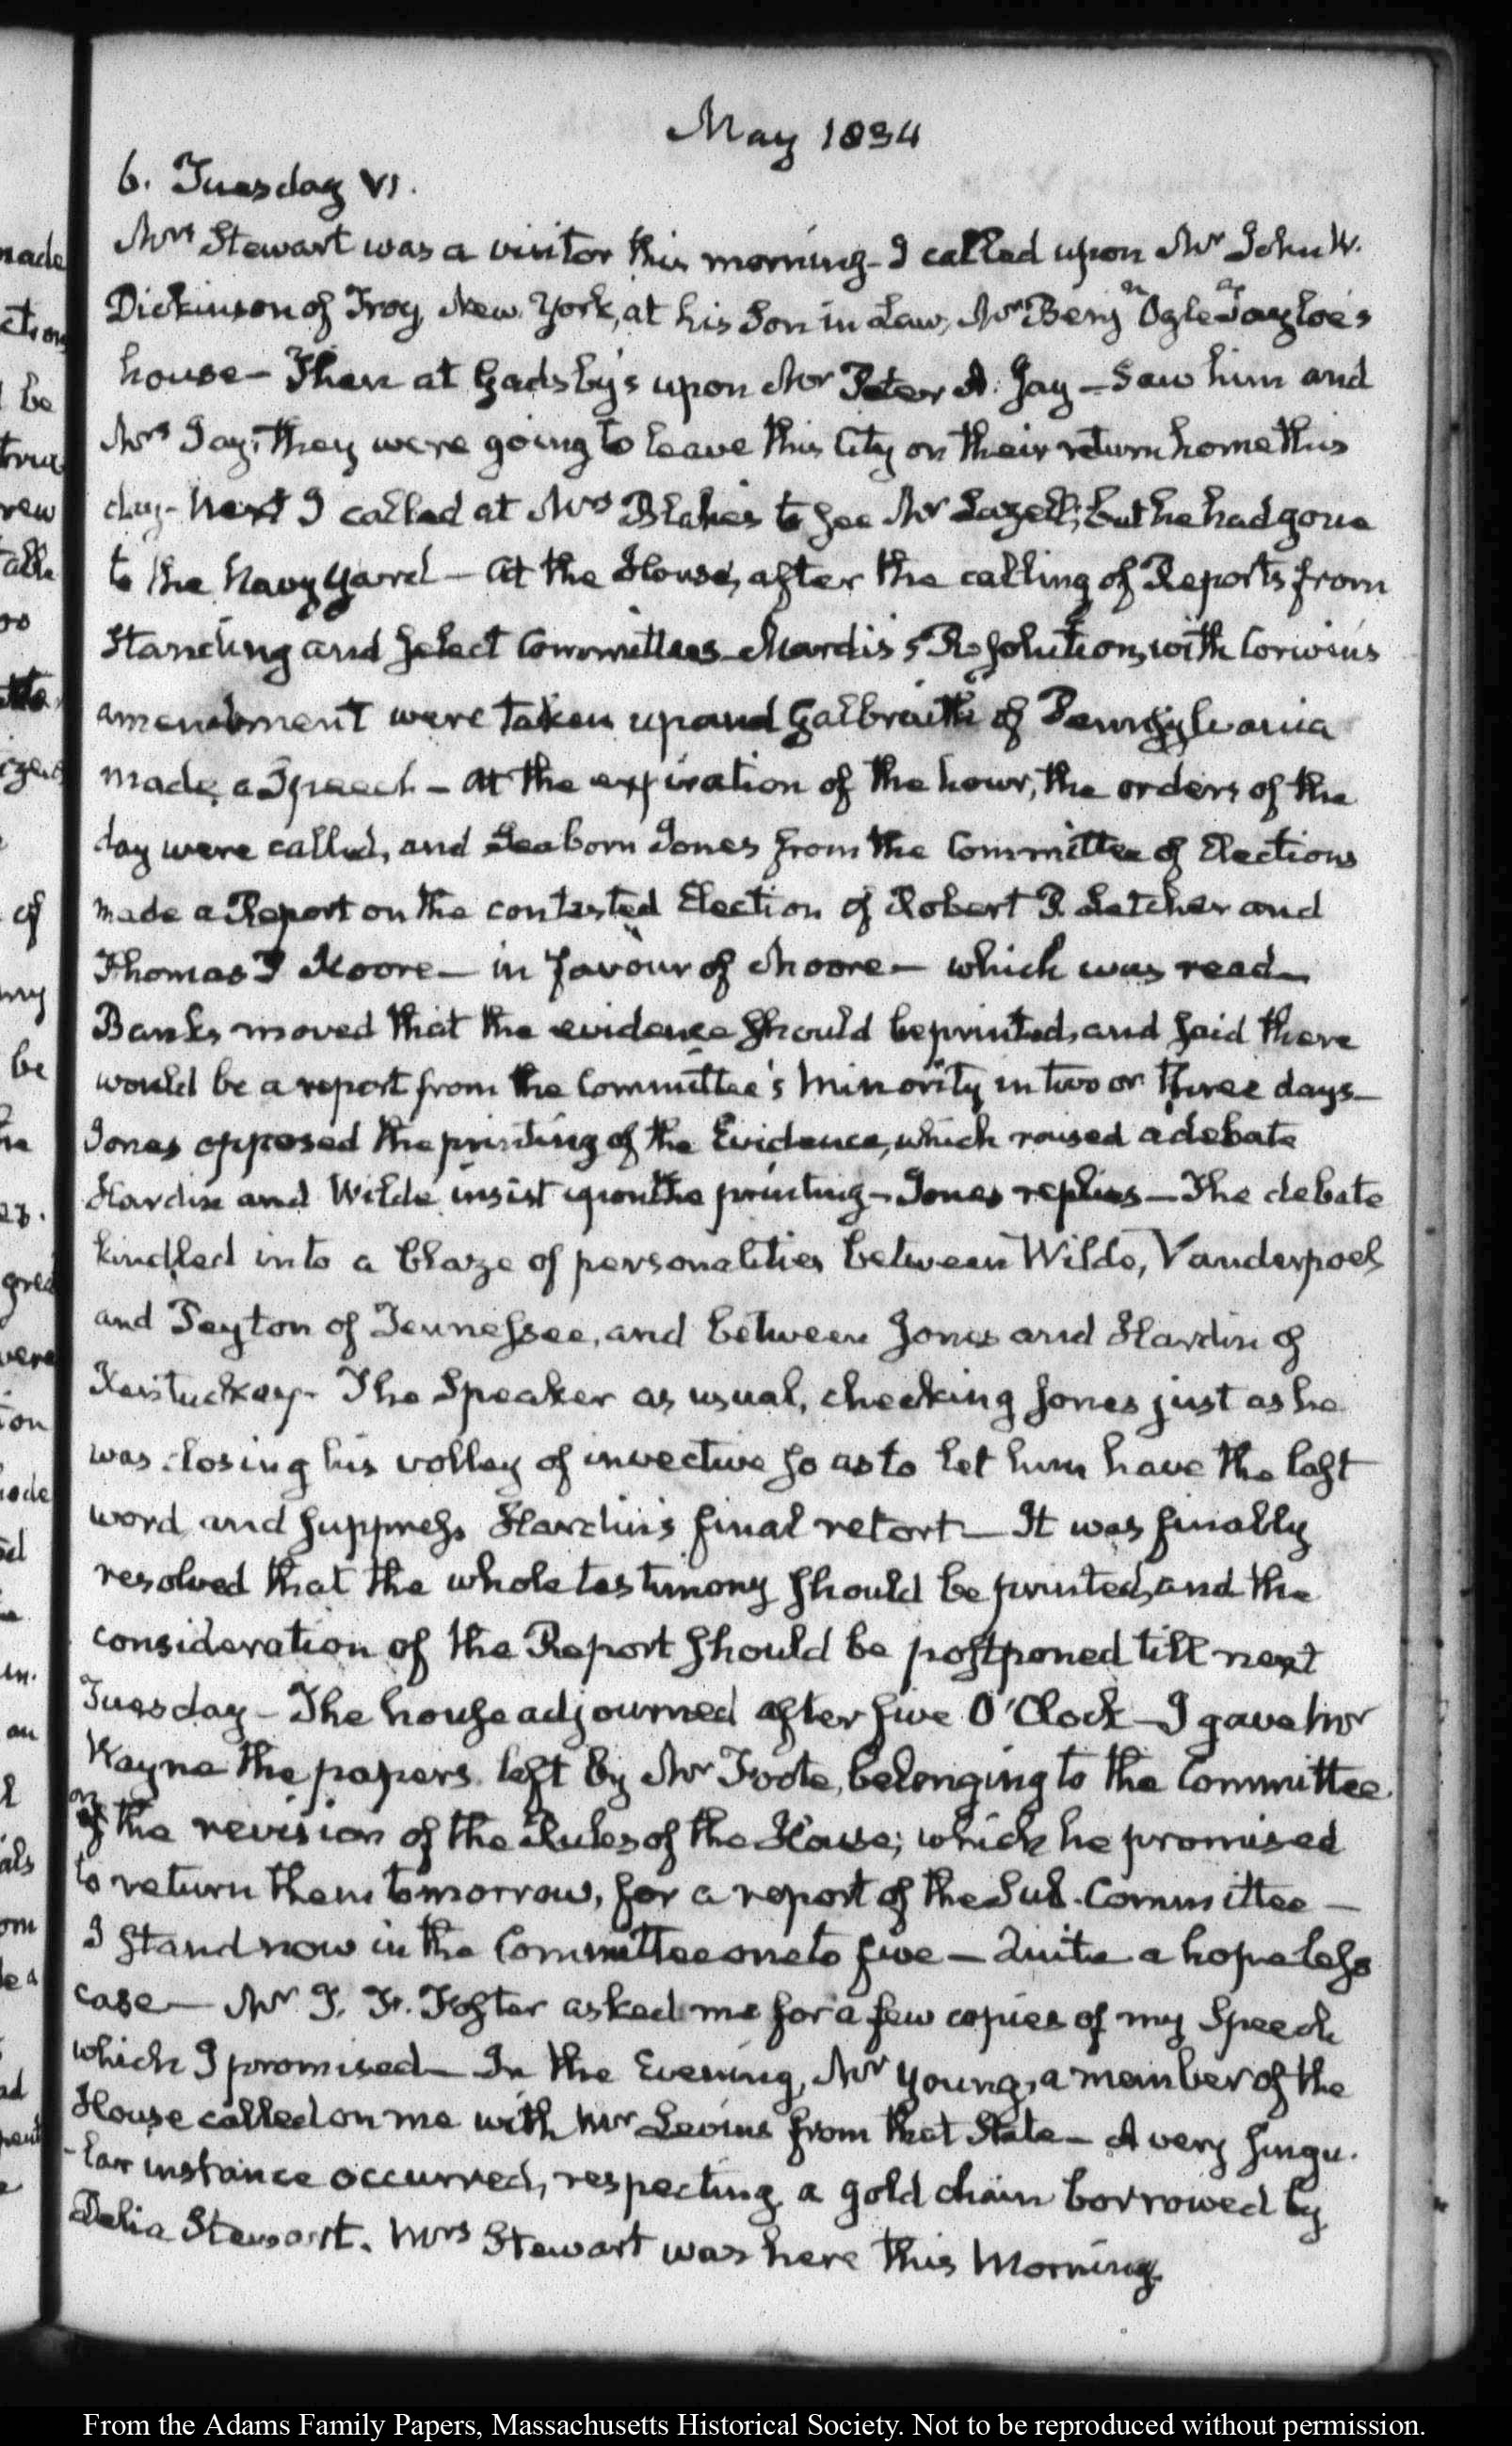 May 1834
6. Tuesday VI.
Mrs Stewart was a visitor this morning – I called upon Mr John W.
Dickinson of Troy, New York, at his Son in Law, Mr Benjn Ogle Tayloe's
house – Then at Gadsby's upon Mr Peter A. Jay – Saw him and
Mrs Jay; they were going to leave this City on their return home this
day – Next I called at Mrs Blake's to see Mr Lazell; but he had gone
to the Navy Yard – At the House, after the calling of Reports from
Standing and Select Committees – Mardis's Resolution, with Corwin's
amendment were taken up and Galbraith of Pennsylvania
made a Speech – At the expiration of the hour, the orders of the
day were called, and Seaborn Jones from the Committee of Elections
made a Report on the contested Election of Robert P. Letcher and
Thomas P Moore – in favour of Moore – which was read –
Banks moved that the evidence should be printed, and said there
would be a report from the Committee's Minority in two or three days –
Jones opposed the printing of the Evidence, which roused a debate
Hardin and Wilde insist upon the printing – Jones replies – The debate
kindled into a blaze of personalities between Wilde, Vanderpoel
and Peyton of Tennessee, and between Jones and Hardin of
Kentuckey – The Speaker as usual, checking Jones just as he
was closing his volley of invective so as to let him have the last
word and suppress Hardin's final retort – It was finally
resolved that the whole testimony should be printed, and the
consideration of the Report should be postponed till next
Tuesday – The house adjourned after five O'Clock – I gave Mr
Wayne the papers left by Mr Foote, belonging to the Committee
on the revision of the Rules of the House; which he promised
to return them tomorrow, for a report of the Sub-Committee –
I stand now in the Committee one to five – Quite a hopeless
case – Mr T. F. Foster asked me for a few copies of my Speech
which I promised – In the Evening, Mr Young, a member of the
House called on me with Mr from that State – A very singu-
-lar instance occurred, respecting a gold chain borrowed by
Delia Stewart. Mrs Stewart was here this Morning.
From the Adams Family Papers, Massachusetts Historical Society. Not to be reproduced without permission.